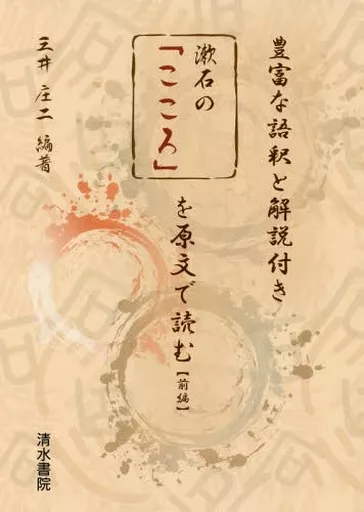 豊富な語釈と解説付き
漱石の
「こころ」
を原文で読む【前編】
三井庄二 編著
清水書院